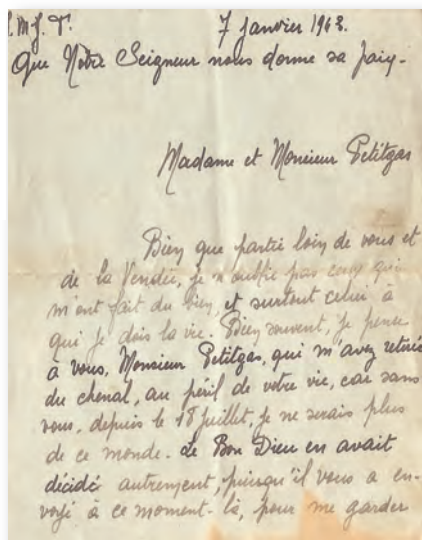 J.M.J.T. 7 janvier 1943.
Que Nôtre Seigneur nous donne sa paix.
Madame et Monsieur Petitgas
Bien que partie loin de vous et
de la Vendée, je n'oublie pas ceux qui
m'ont fait du bien, et surtout celui à
qui je dois la vie. Bien souvent, je pense
à vous, Monsieur Petitgas, qui m'avez retirée
du chenal, au péril de votre vie, car sans
vous, depuis le 18 juillet, je ne serais plus
de ce monde. Le Bon Dieu en avait
décidé autrement, puisqu'il vous a en-
voyé à ce moment-là, pour me garder